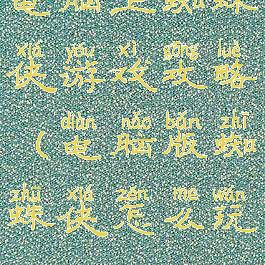 电脑上蜘蛛
xiá yóu xì gōng lüè
侠游戏攻略
diàn nǎo bǎn zhī
(电脑版蜘
zhū xiá zěn me wán
蛛侠怎么玩